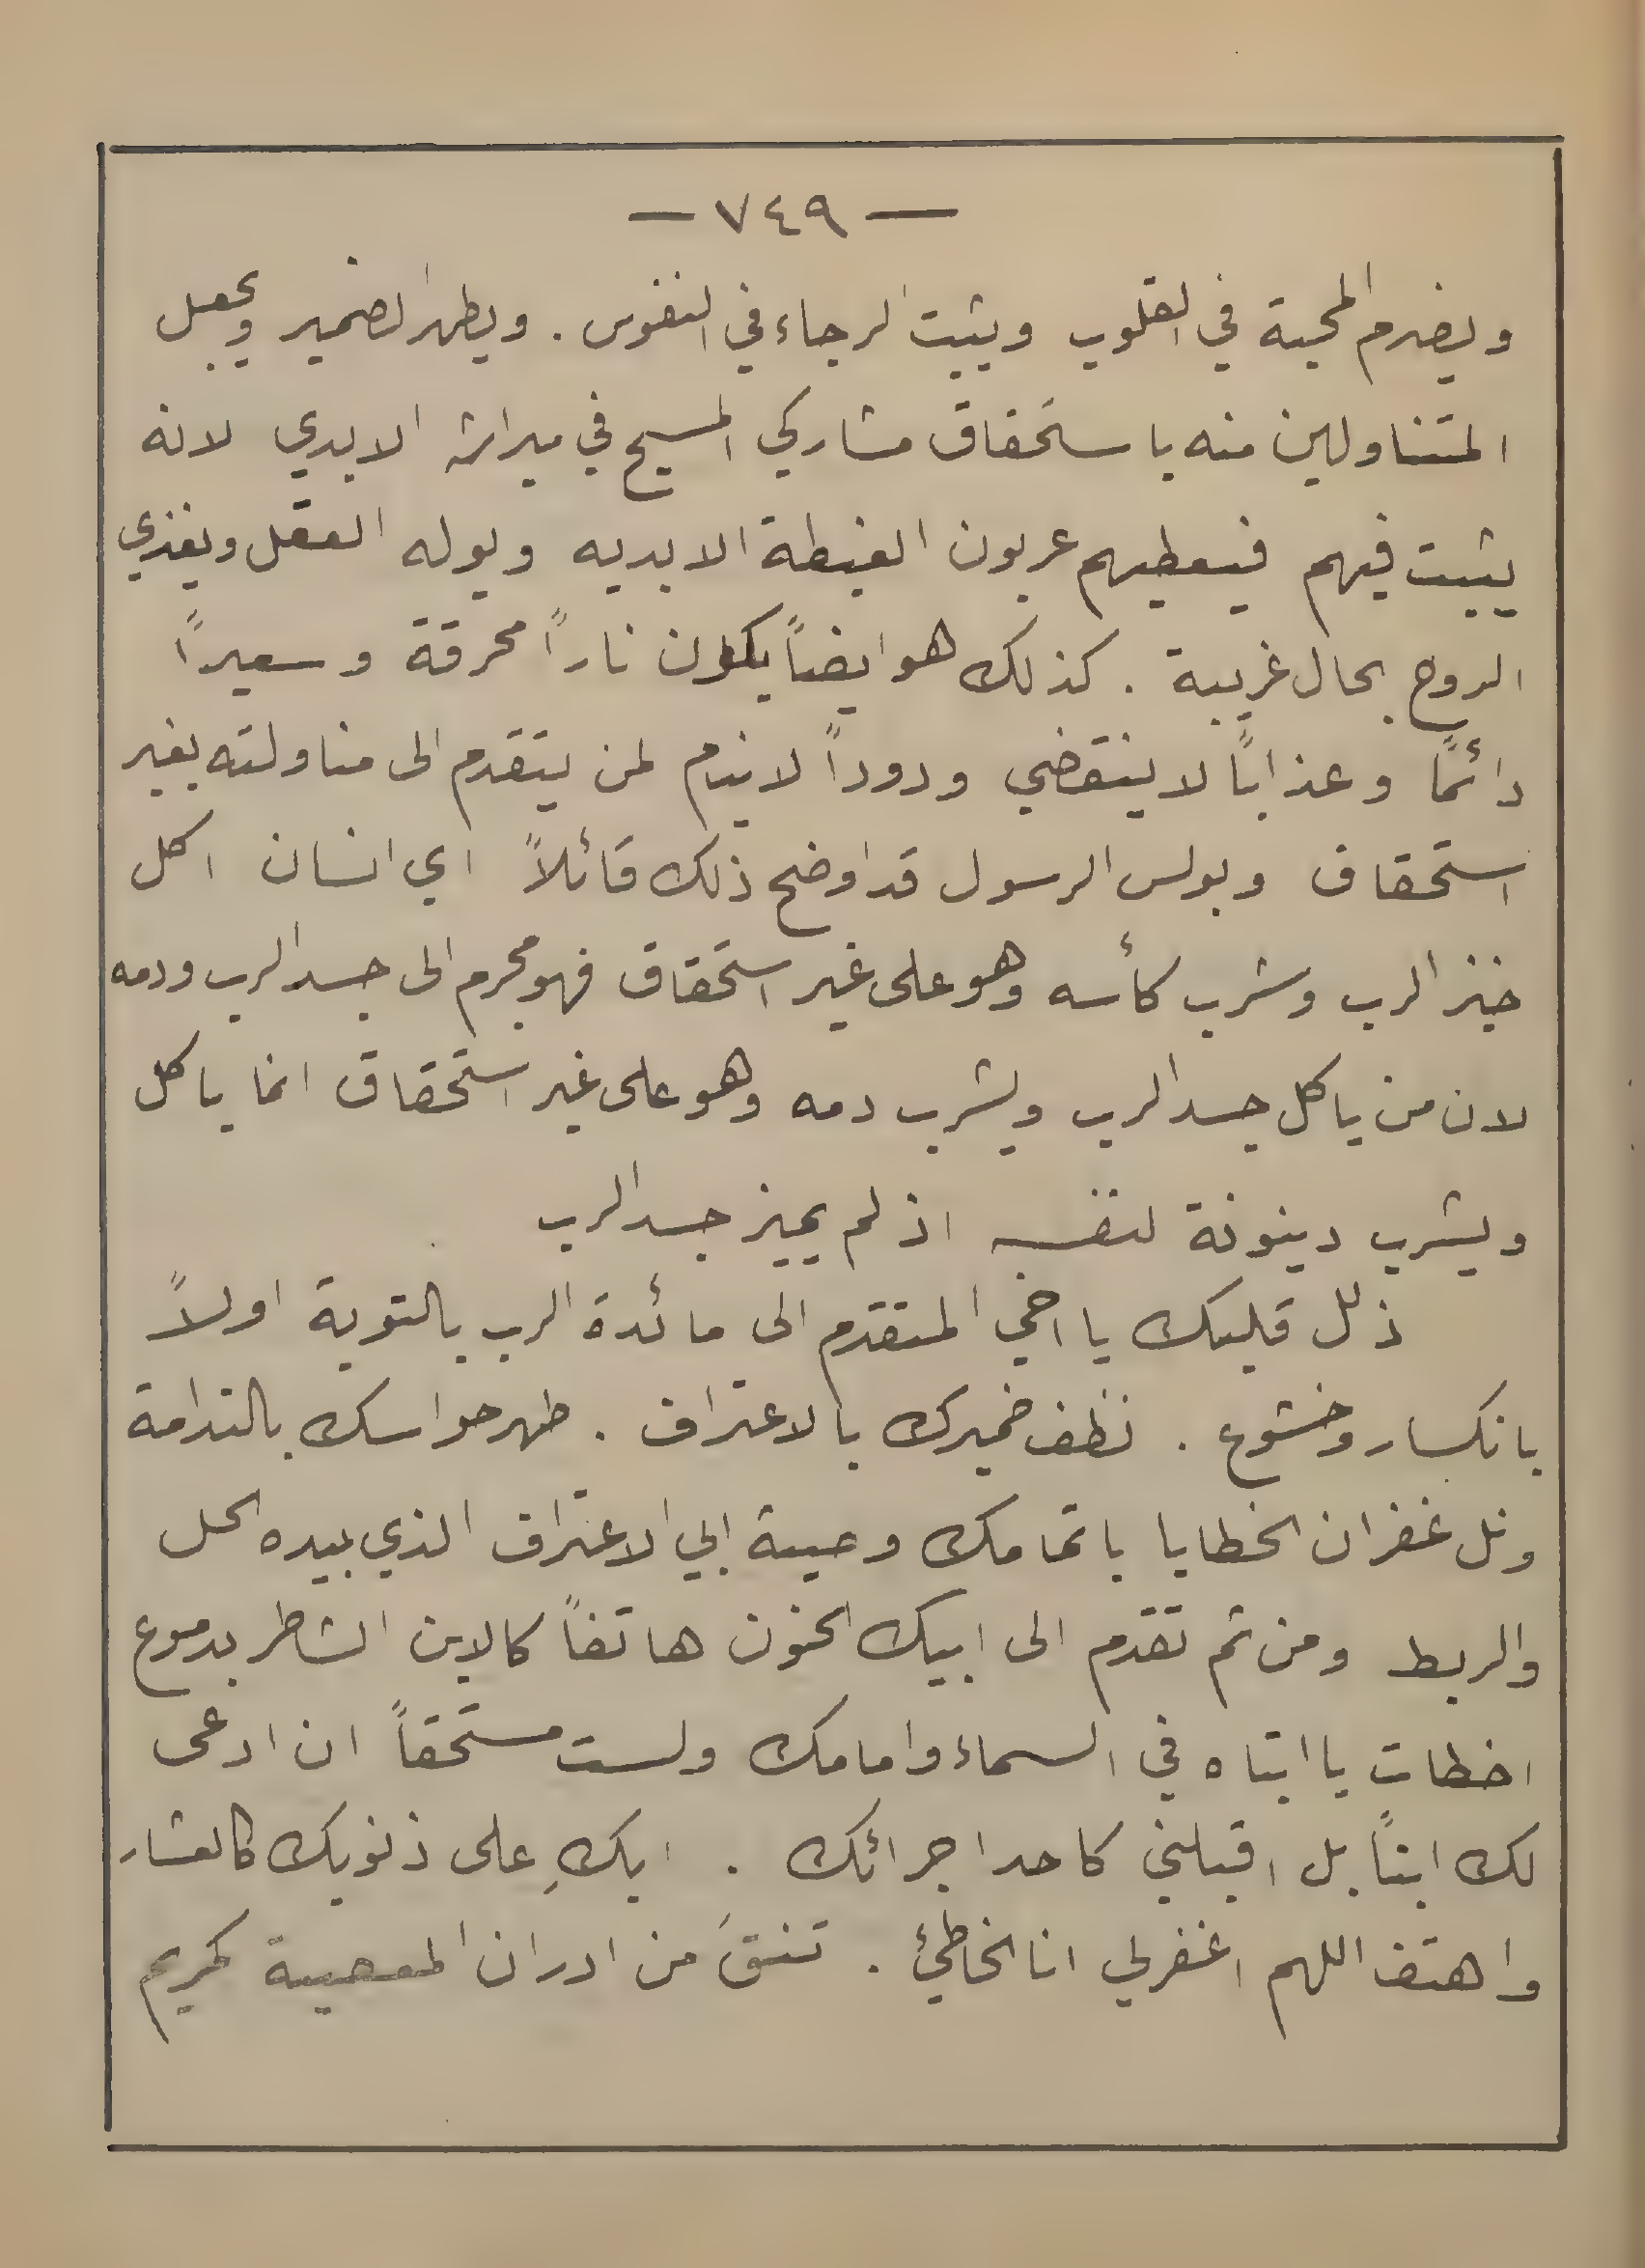 — ٧٤٩ —
ويضرم المحبة في القلوب ويثبت الرجاء في النفوس . ويطهر الضمير ويجعل
المتناولين منه باستحقاق مشاركي المسيح في ميراثه الابدي لانه
يثبت فيهم فيعطيهم عربون الغبطة الابديه ويوله العقل ويغذي
الروح بحال غريبة . كذلك هو ايضاً يكون ناراً محرقة وسعيراً
دائمًا وعذابًا لا ينقضي ودوداً لا ينام لمن يتقدم الى مناولته بغير
استحقاق وبولس الرسول قد اوضح ذلك قائلاً اي انسان اكل
خبز الرب وشرب كأسه وهو على غير استحقاق فهو مجرم الى جسد الرب ودمه
لان من ياكل جسد الرب ويشرب دمه وهو على غير استحقاق انما ياكل
ويشرب دينونة لنفسه اذ لم يميز جسد الرب
ذلل قلبك يا اخي المتقدم الى مائدة الرب بالتوبة اولاً
بانكسار وخشوع . نظف ضميرك بالاعتراف . طهر حواسك بالندامة
ونل غفران الخطايا باتمامك وصية ابي الاعتراف الذي بيده الحل
والربط ومن ثم تقدم الى ابيك الحنون هاتفاً كالابن الشاطر بدموع
اخطات يا ابتاه في السماء وامامك ولست مستحقاً ان ادعى
لك ابنًا بل اقبلني كاحد اجرائك . ابكِ على ذنوبك كالعشار
واهتف اللهم اغفر لي انا الخاطئ . تنقَ من ادران المعصية كمريم